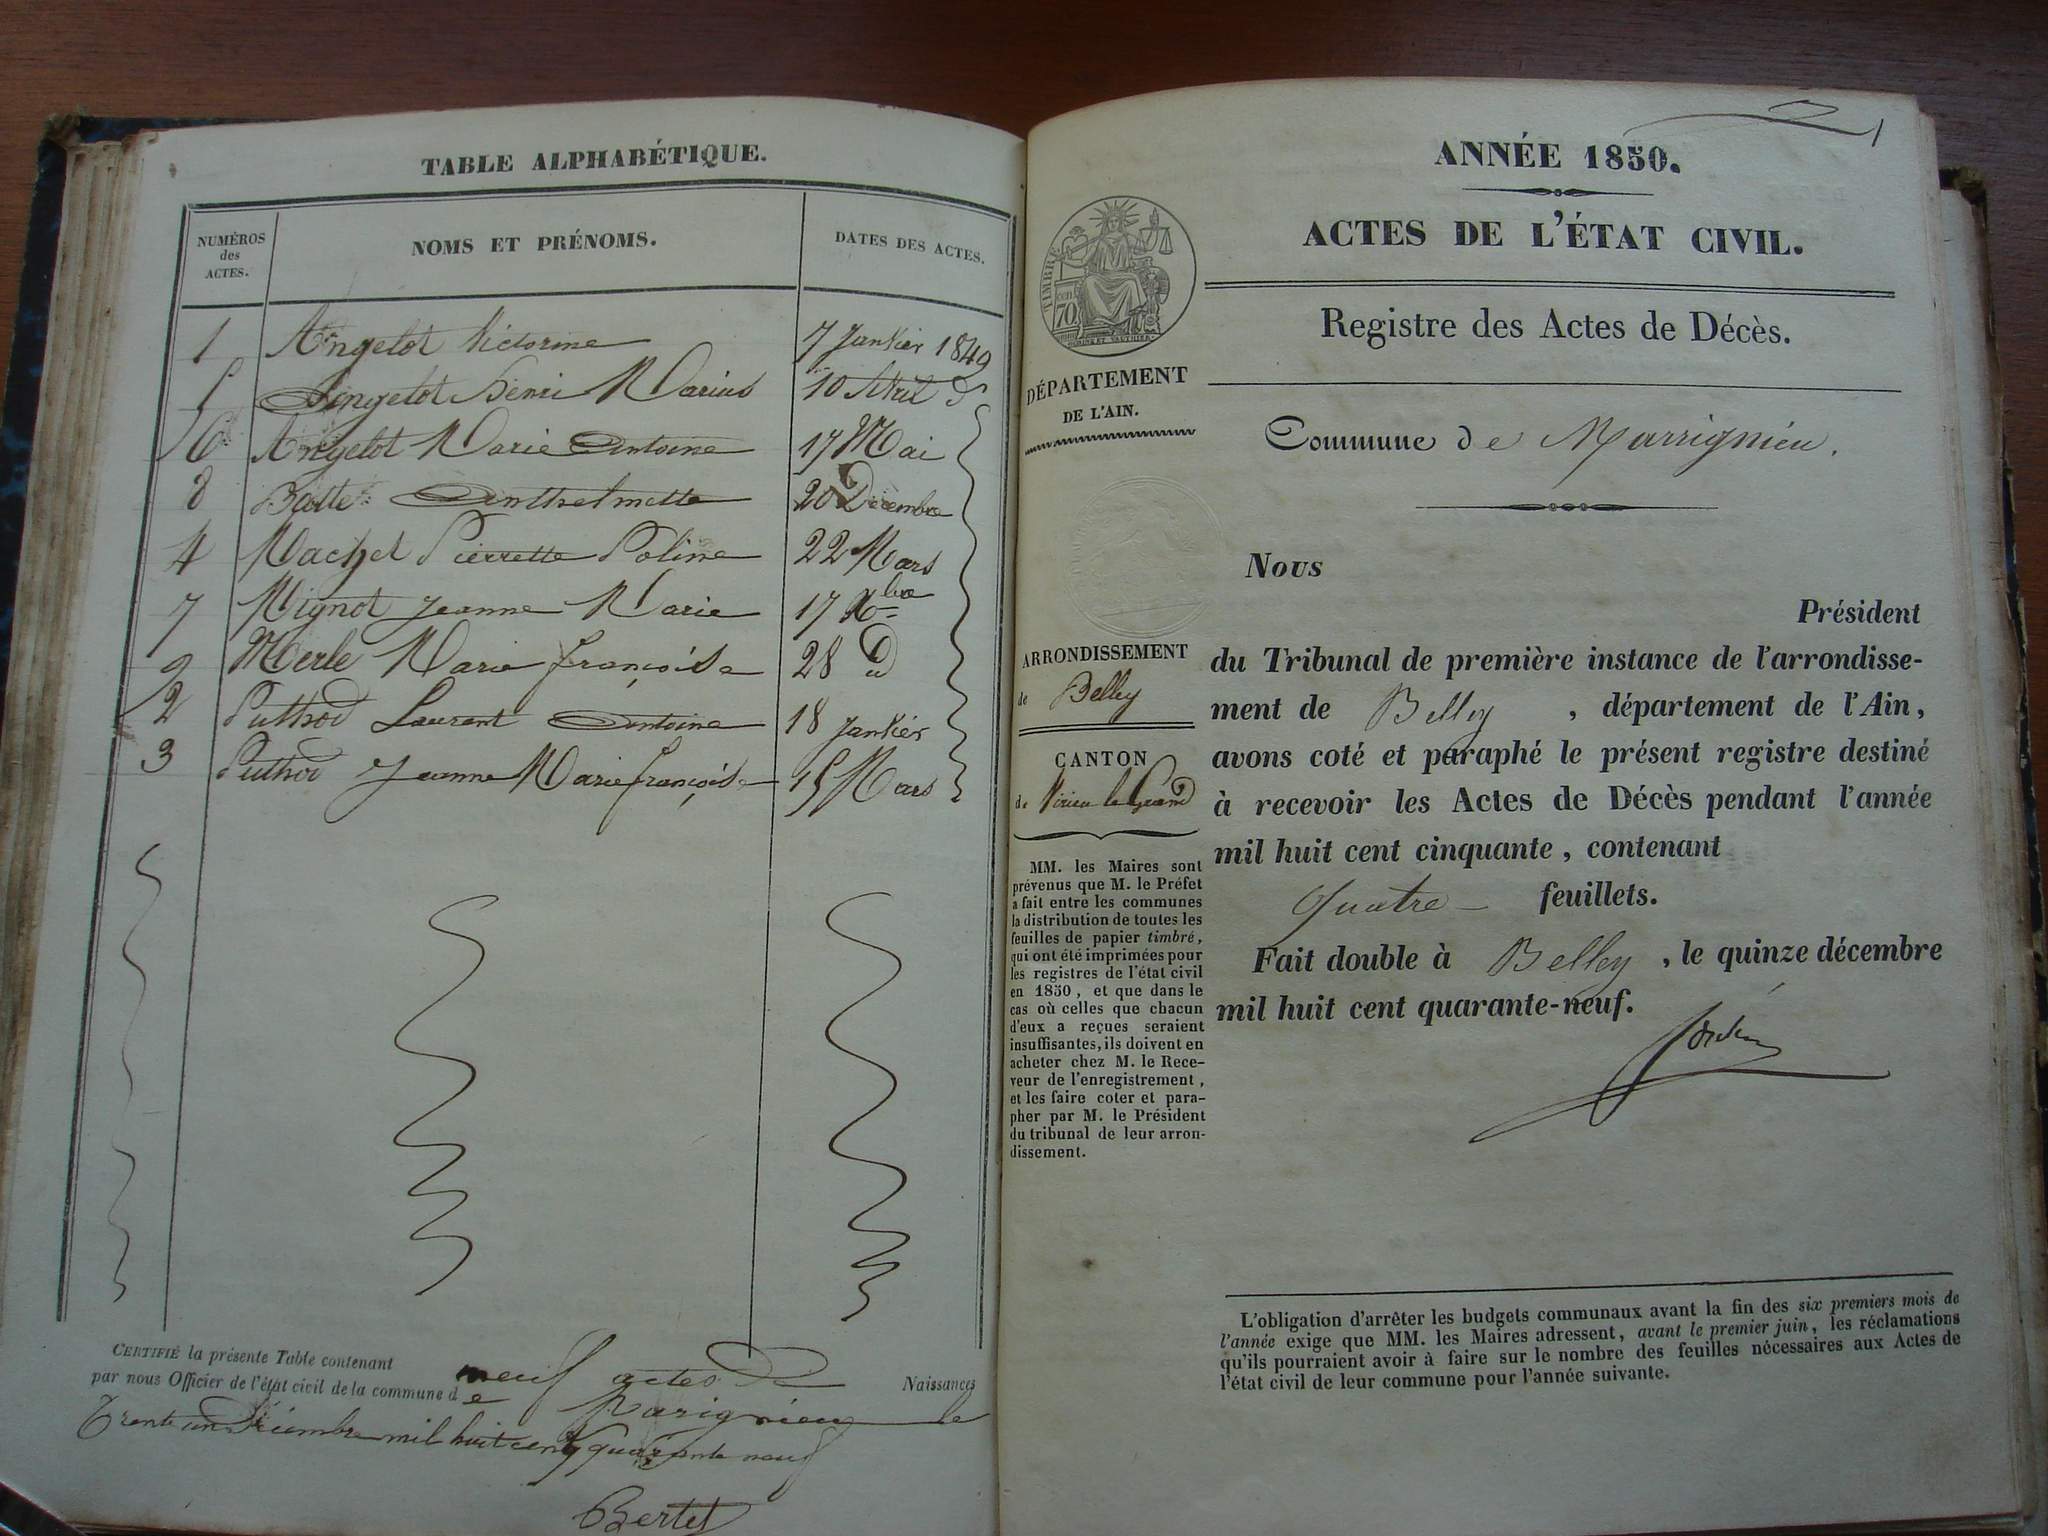 TABLE ALPHABÉTIQUE.
NUMÉROS
des
ACTES.
NOMS ET PRÉNOMS.
DATES DES ACTES.
1 Angelot Victorine 7 Janvier 1849
5 Angelot henri Marius 10 Avril d
6 Angelot Marie Antoine 17 Mai
8 Batte Anthelmette 20 Décembre
4 Machet Pierrette Poline 22 Mars
7 Mignot Jeanne Marie 17 Xbre
9 Merle Marie françoise 28 d
2 Puthod Laurent Antoine 18 Janvier
3 Puthod Jeanne Marie françoise 15 Mars
CERTIFIÉ la présente Table contenant neuf actes de Naissances
par nous Officier de l'état civil de la commune de Marignieu le
Trente un Décembre mil huit cent quarante neuf
Bertet
1
ANNÉE 1850.
ACTES DE L'ÉTAT CIVIL.
Registre des Actes de Décès.
TIMBRE
70
DÉPARTEMENT
DE L'AIN.
Commune de Marrignieu.
Nous
Président
du Tribunal de première instance de l'arrondisse-
ment de Belley, département de l'Ain,
avons coté et paraphé le présent registre destiné
à recevoir les Actes de Décès pendant l'année
mil huit cent cinquante, contenant
Quatre feuillets.
Fait double à Belley, le quinze décembre
mil huit cent quarante-neuf.
ARRONDISSEMENT
de Belley
CANTON
de Virieu le Grand
MM. les Maires sont
prévenus que M. le Préfet
a fait entre les communes
la distribution de toutes les
feuilles de papier timbré,
qui ont été imprimées pour
les registres de l'état civil
en 1850, et que dans le
cas où celles que chacun
d'eux a reçues seraient
insuffisantes, ils doivent en
acheter chez M. le Rece-
veur de l'enregistrement,
et les faire coter et para-
pher par M. le Président
du tribunal de leur arron-
dissement.
L'obligation d'arrêter les budgets communaux avant la fin des six premiers mois de
l'année exige que MM. les Maires adressent, avant le premier juin, les réclamations
qu'ils pourraient avoir à faire sur le nombre des feuilles nécessaires aux Actes de
l'état civil de leur commune pour l'année suivante.